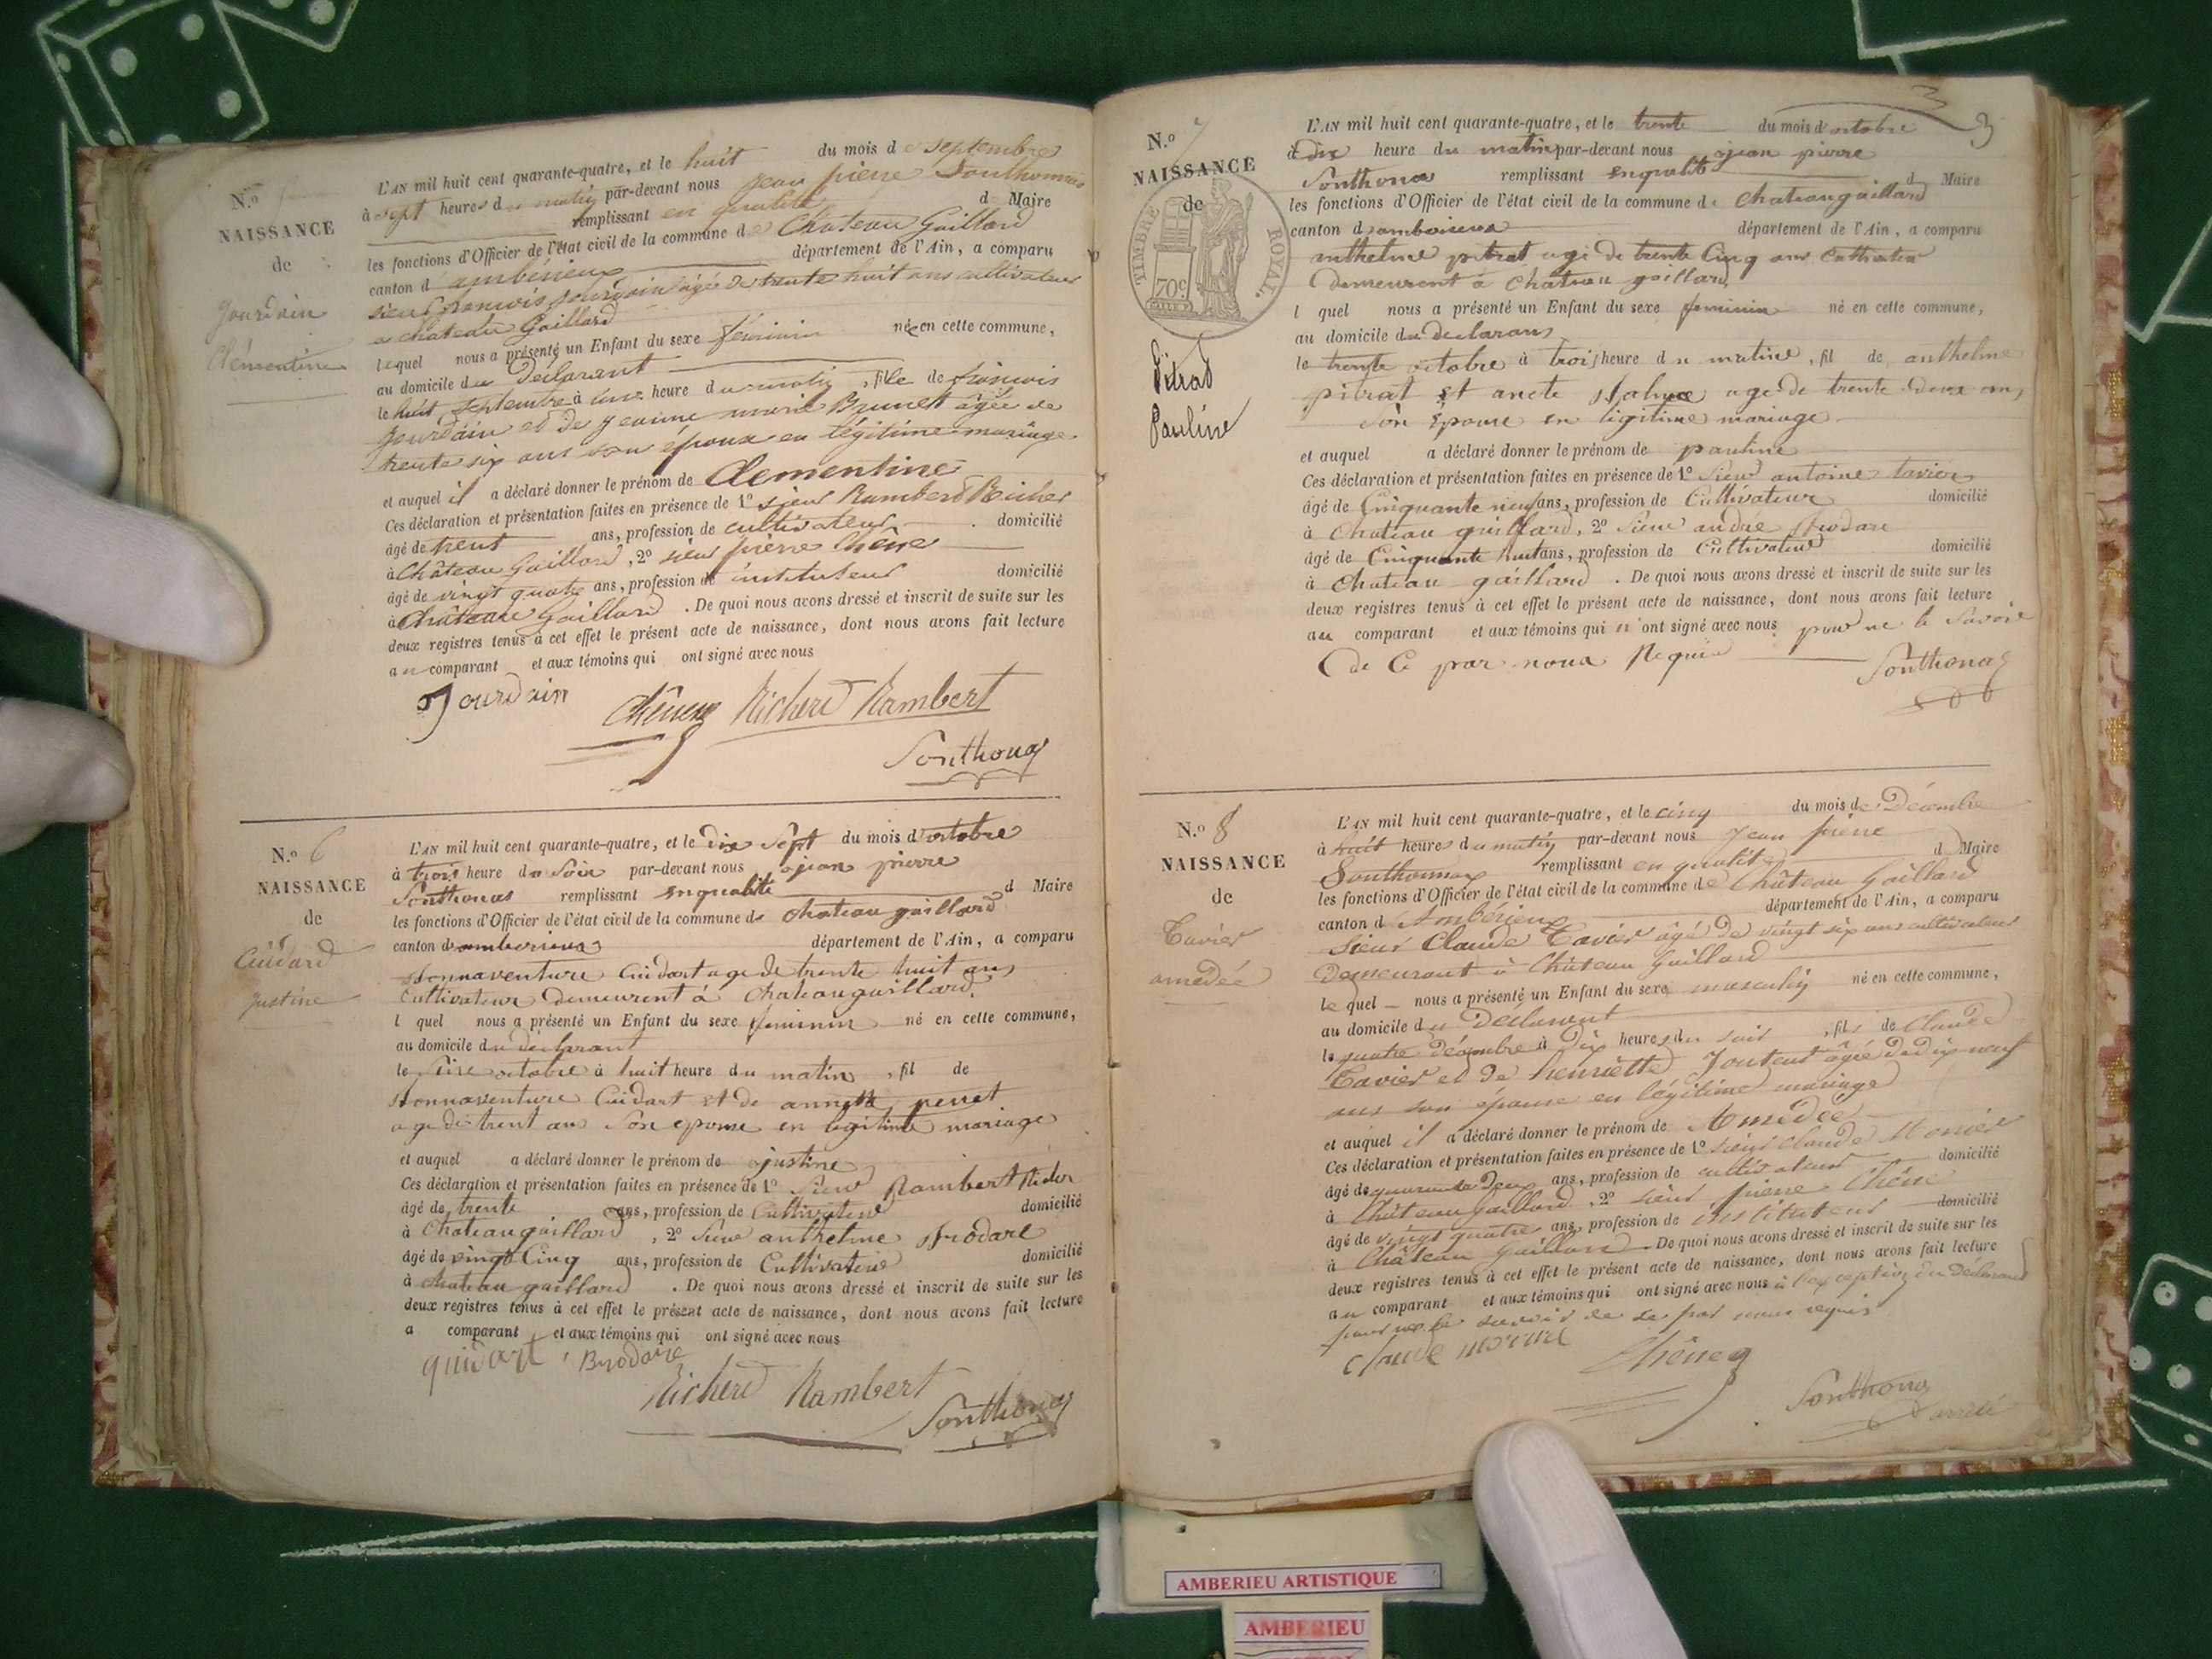 N.o
NAISSANCE
de
Jourdain
Clémentine
L'AN mil huit cent quarante-quatre, et le huit du mois de septembre
à sept heures du matin par-devant nous jean pierre Sonthonnax
remplissant en qualité de Maire
les fonctions d'Officier de l'état civil de la commune de Chateau Gaillard
canton d'ambérieux département de l'Ain, a comparu
sieur francois jourdain âgé de trente huit ans cultivateur
a chateau Gaillard
lequel nous a présenté un Enfant du sexe féminin née en cette commune,
au domicile du Déclarant
le huit septembre à une heure du matin, fille de francois
jourdain et de jeanne marie Brunet âgée de
trente six ans son épouse en légitime mariage
et auquel il a déclaré donner le prénom de Clementine
Ces déclaration et présentation faites en présence de 1o sieur Rambert Richer
âgé de trent ans, profession de cultivateur domicilié
à Château Gaillard, 2o sieur pierre Chêne
âgé de vingt quatre ans, profession de instituteur domicilié
à Château Gaillard. De quoi nous avons dressé et inscrit de suite sur les
deux registres tenus à cet effet le présent acte de naissance, dont nous avons fait lecture
au comparant et aux témoins qui ont signé avec nous
Jourdain Chêne Richerd Rambert
Sonthonax
N.o 6
NAISSANCE
de
Cuidard
justine
L'AN mil huit cent quarante-quatre, et le dix sept du mois d'octobre
à trois heure du soir par-devant nous jean pierre
Sonthonas remplissant enqualité d Maire
les fonctions d'Officier de l'état civil de la commune de chateau gaillard
canton d'amberieux département de l'Ain, a comparu
Bonnaventure Cuidart age de trente huit ans
Cultivateur demeurent à chateau gaillard
l quel nous a présenté un Enfant du sexe feminin né en cette commune,
au domicile du declarant
le seize octobre à huit heure du matin, fil de
Bonnaventure Cuidart et de annette perret
age de trent ans son epouse en legitime mariage
et auquel a déclaré donner le prénom de justine
Ces déclaration et présentation faites en présence de 1o Sieur Rambert Richer
âgé de trente ans, profession de Cultivateur domicilié
à Chateau gaillard, 2o Sieur anthelme Brodare
âgé de vingt Cinq ans, profession de Cultivateur domicilié
à chateau gaillard. De quoi nous avons dressé et inscrit de suite sur les
deux registres tenus à cet effet le présent acte de naissance, dont nous avons fait lecture
a comparant et aux témoins qui ont signé avec nous
quidart Brodare
Richerd Rambert Sonthonax
3
N.o 7
NAISSANCE
de
TIMBRE ROYAL.
70c
Pitrat
Pauline
L'AN mil huit cent quarante-quatre, et le trente du mois d'octobre
à dix heure du matin par-devant nous jean pierre
Sonthonax remplissant enqualité d Maire
les fonctions d'Officier de l'état civil de la commune de Chateaugaillard
canton d'amberieux département de l'Ain, a comparu
anthelme pitrat age de trente Cinq ans Cultivateur
demeurent à chateau gaillard
l quel nous a présenté un Enfant du sexe feminin né en cette commune,
au domicile du declarans
le trente octobre à trois heure du matine, fil de anthelme
pitrat et age de trente deux ans
son épouse en ligitime mariage
et auquel a déclaré donner le prénom de pauline
Ces déclaration et présentation faites en présence de 1o Sieur antoine tavier
âgé de Cinquante neuf ans, profession de Cultivateur domicilié
à Chateau gaillard, 2o Sieur andré Brodare
âgé de Cinquante huit ans, profession de Cultivateur domicilié
à chateau gaillard. De quoi nous avons dressé et inscrit de suite sur les
deux registres tenus à cet effet le présent acte de naissance, dont nous avons fait lecture
au comparant et aux témoins qui n'ont signé avec nous pour ne le savoir
de ce par nous Requis
Sonthonax
N.o 8
NAISSANCE
de
Tavier
amédée
L'AN mil huit cent quarante-quatre, et le cinq du mois de Décembre
à huit heures du matin par-devant nous jean pierre
Sonthonnax remplissant en qualité d Maire
les fonctions d'Officier de l'état civil de la commune de Château Gaillard
canton d'Ambérieux département de l'Ain, a comparu
sieur Claude Tavier âgé de vingt six ans cultivateur
Demeurant à Château Gaillard
lequel nous a présenté un Enfant du sexe masculin né en cette commune,
au domicile du Déclarant
le quatre décembre à Dix heures du soir, fils de Claude
Tavier et de henriette âgée de dix neuf
ans son épouse en légitime mariage
et auquel il a déclaré donner le prénom de Amédée
Ces déclaration et présentation faites en présence de 1o sieur Claude
âgé de quarante Deux ans, profession de cultivateur domicilié
à Château Gaillard, 2o sieur pierre Chêne
âgé de vingt quatre ans, profession de instituteur domicilié
à Château Gaillard. De quoi nous avons dressé et inscrit de suite sur les
deux registres tenus à cet effet le présent acte de naissance, dont nous avons fait lecture
au comparant et aux témoins qui ont signé avec nous à l'exception du Déclarant
pour ne le savoir de ce par nous requis
claude Chêne
Sonthonax
arrêté
AMBERIEU ARTISTIQUE
AMBERIEU